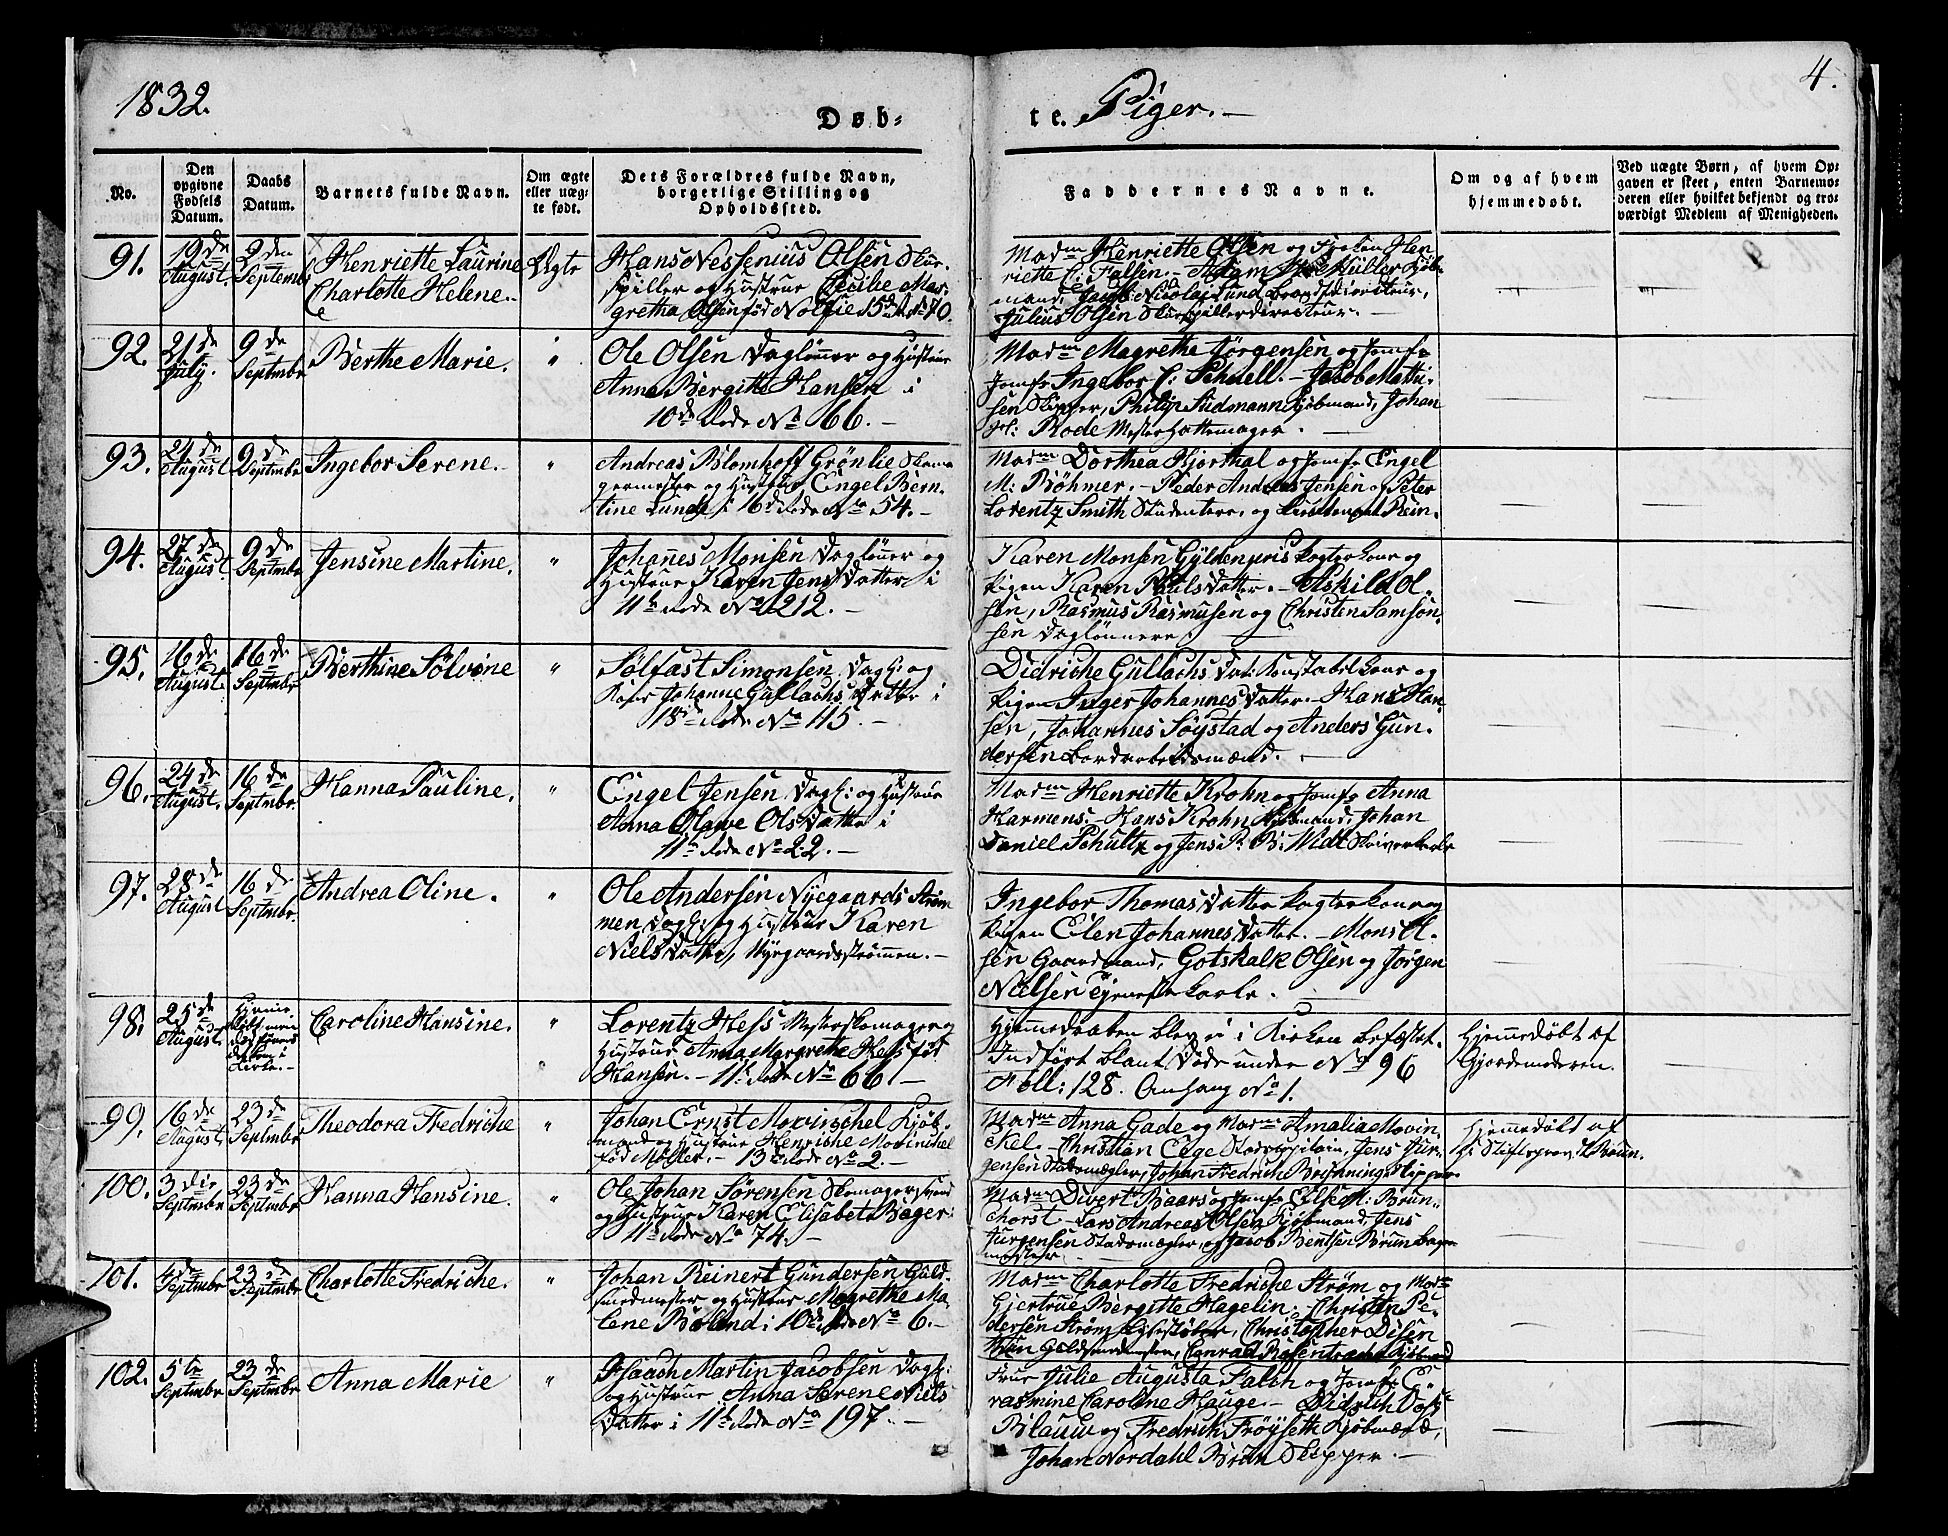 1832.
Døb-
te. Piger.
4.
No.
Den opgivne Fødsels Datum.
Daabs Datum.
Barnets fulde Navn.
Om ægte eller uægte født.
Dets Forældres fulde Navn, borgerlige Stilling og Opholdssted.
Faddernes Navne.
Om og af hvem hjemmedøbt.
Ved uægte Børn, af hvem Opgaven er skeet, enten Barnemoderen eller hvilket bekjendt og troværdigt Medlem af Menigheden.
91. 19de August. 2den Septembr Henriette Laurine Charlotte Helene. Ægte
Hans Nessenius Olsen Skue-
spiller og Hustrue Cecilie Mar-
gretha Olsen fød
Madm Henriette Olsen og Frøken Hen
riette C: Falsen. - Adam Müller Kjøb-
mand, Nicolai Lund Brandt
Julius Olsen Skuespillerdirecteur. -
92. 21de July. 9de Septembr Berthe Marie. "
Ole Olsen Dagløнner og Hustrue
Anne Bergitte Hansen i
10de Rode No 66. -
Madm Magrethe Jørgensen og Jomfr
Jomfr Ingebor C: Schnell. - Jacob Mathi-
sen Skipper, Philip Südmann Kjøbmand, Johan
Rode Mester Hattemager. -
93. 24de August 9de Septembr Ingebor Serene. - "
Andreas Blomhoff Grönlie Skoma
germester og Hustrue Engel Bern-
tine Lunde i 16de Rode No 54. -
Madm Dorthea Hjorthal og Jomfr Engel
M: Böhmer. - Peder Andreas Jensen og Peter
Lorentz Smith Studentere, og Lieutenant Rein.
94. 27de August. 9de Septembr Jensine Martine. "
Johannes Monsen Dagløнner og
Hustrue Karen Jens Datter i
11te Rode No 212. -
Karen Monsen Gyldenpris Pogterkone og
Pigen Karen Pouls Datter. - Askild Ol-
sen, Rasmus Rasmusen og Christen Samson-
sen Dagløннere.
95. 16de August. 16de Septembr Berthine Sølvine "
Sølfast Simonsen Dagl: og
Kone Johanne Gullachs Datter i
18de Rode No 115. -
Didriche Gullachs Dat: Konstabel kone og
Pigen Inger Johannes Datter. - Hans Han-
sen, Johannes Søystad og Anders Gun-
dersen Bordarbeidsmænd. -
96. 24de August. 16de Septembr. Hanna Pauline. "
Engel Jensen Dagl: og Hustrue
Anna Olawe Ols Datter i
11te Rode No 22. -
Madm Henriette Krohn og Jomfr Anna
Harmens. - Hans Krohn Kjøbmand, Johan
Daniel Schultz og Jens P: B: Widt Skriverkarle
97. 28de August 16de Septembr. Andrea Oline. "
Ole Andersen Nyegaards Strøm
men Dagl: og Hustrue Karen
Niels Datter, Nyegaardsstrømmen. -
Ingebor Thomas Datter Pogterkone og
Pigen Elen Johannes Datter. - Mons Ol-
sen Gaardmand, Gotskalk Olsen og Jørgen
Nielsen Tjenestekarle.
98. 25de August. Caroline Hansine. "
Lorentz Hess Mesterskomager og
Hustrue Anna Margrethe Hess fød
Hansen. - 11te Rode No 66. -
Hjemmedaaben blev ei i Kirken befæstet.
Indført blant Døde under No 96
Foll: 128. Anhang No 1.
Hjemmedøbt af
Gjordemoderen.
99. 16de August 23de Septembr Theodora Fredriche "
Johan Ernst Mowinschel Kjøb-
mand og Hustrue Henriche Mowinschel
fød Møller. - 13de Rode No 2. -
Madm Anna Gade og Madm Amalia Mowin-
ckel. - Christian Ege , Jens Jür-
gensen Stadsmægler, Johan Fredrich Skipper.
Hjemmedøbt af
Stiftsprovst Brun.
100. 3die Septembr 23de Septembr Hanna Hansine. "
Ole Johan Sørensen Skomagersvend
og Hustrue Karen Elisabet Bøger:
11te Rode No 74. -
Madm Divert Baars og Jomfr M: Brun-
chorst. - Lars Andreas Olsen Kjøbmand, Jens
Jürgensen Stadsmægler, og Jacob Bentsen Brun Bager
mester
101. 4de Septembr 23de Septembr Charlotte Fredriche. "
Johan Reinert Gundersen Guld-
smedmester og Hustrue Magrethe Ma-
lene i 10de Rode No 6. -
Madm Charlotte Fredriche Strøm og Mad
Gjertrue Bergitte Hagelin. - Christen Pe-
dersen Strøm , Christopher Disen
Brun Guldsmedmester, Conrad Kjøbmand
102. 5te Septembr 23de Septembr Anna Marie "
Isaach Martin Jacobsen Dagl:
og Hustrue Anna Serene Niels
Datter i 11te Rode No 197. -
Frue Julie Augusta Falch og Jomfr E-
rasmine Caroline Hauge. - Didrich
Blauw og Fredrich Frøyseth Kjøbmænd,
Johan Nordahl Brun Skipper. -